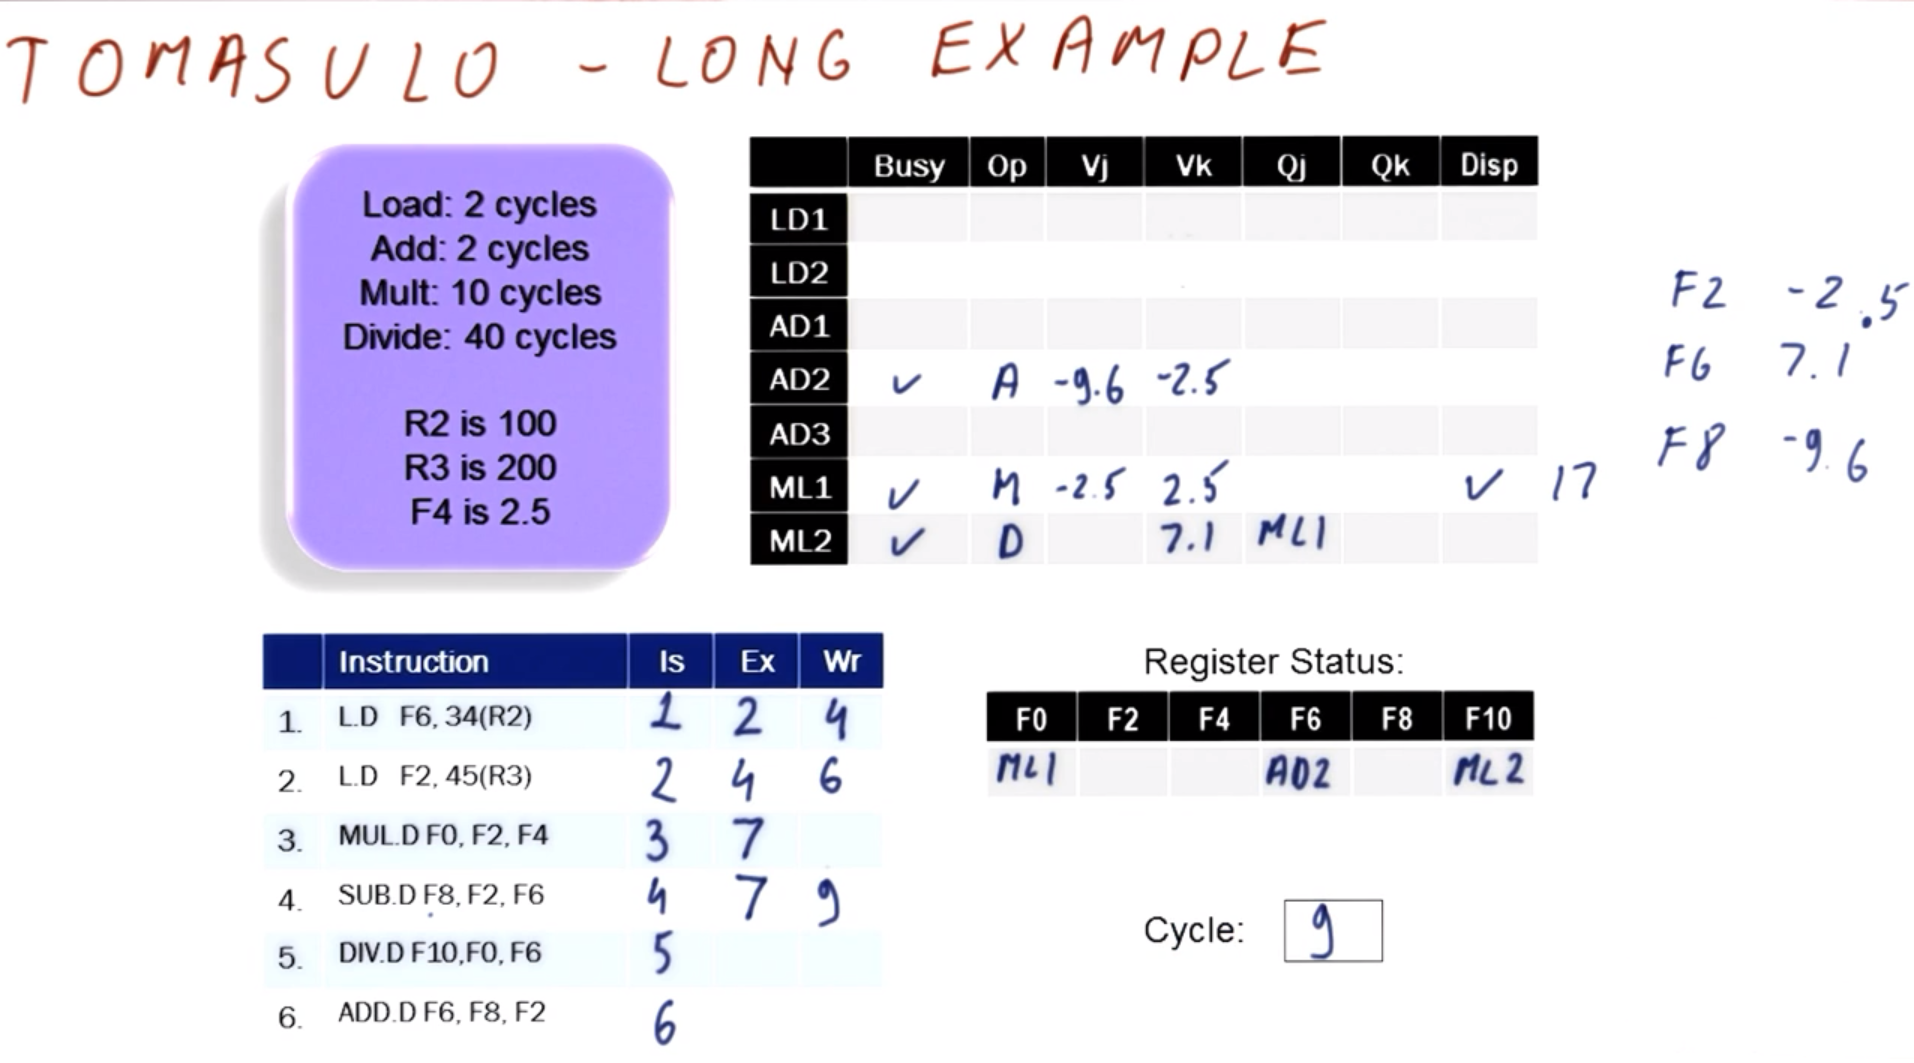 TOMASULO - LONG EXAMPLE
Load: 2 cycles
Add: 2 cycles
Mult: 10 cycles
Divide: 40 cycles
R2 is 100
R3 is 200
F4 is 2.5
Busy Op Vj Vk Qj Qk Disp
LD1
LD2
AD1
AD2 ✓ A -9.6 -2.5
AD3
ML1 ✓ M -2.5 2.5 ✓ 17
ML2 ✓ D 7.1 ML1
F2 -2.5
F6 7.1
F8 -9.6
Instruction Is Ex Wr
1. L.D F6, 34(R2) 1 2 4
2. L.D F2, 45(R3) 2 4 6
3. MUL.D F0, F2, F4 3 7
4. SUB.D F8, F2, F6 4 7 9
5. DIV.D F10,F0, F6 5
6. ADD.D F6, F8, F2 6
Register Status:
F0 F2 F4 F6 F8 F10
ML1 AD2 ML2
Cycle: 9